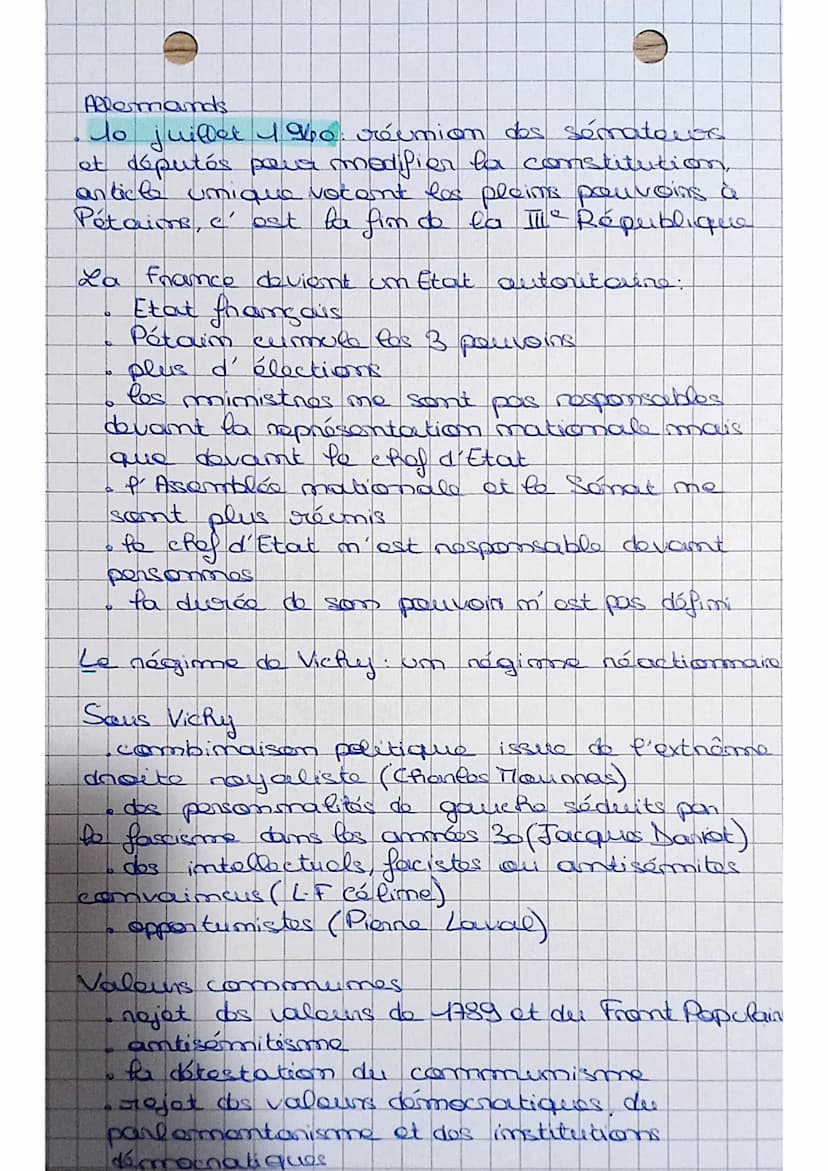 Allemands
. 10 juillet 1940 : réunion des sénateurs
et députés pour modifier la constitution,
article unique votant les pleins pouvoirs à
Pétains, c'est la fin de la IIIe République
La France devient un Etat autoritaire :
. Etat français
. Pétain cumule les 3 pouvoirs
. plus d'élections
. les ministres ne sont pas responsables
devant la représentation nationale mais
que devant le chef d'Etat
. l'Assemblée nationale et le Sénat ne
sont plus réunis
. le chef d'Etat n'est responsable devant
personnes
. la durée de son pouvoir n'est pas défini
Le régime de Vichy : un régime réactionnaire
Sous Vichy
. combinaison politique issue de l'extrême
droite royaliste (Charles Maurras)
. des personnalités de gauche séduits par
le fascisme dans les années 30 (Jacques Doriot)
. des intellectuels, facistes ou antisémites
convaincus (L-F Céline)
. opportunistes (Pierre Laval)
Valeurs communes
. rejet des valeurs de 1789 et du Front Populair
. antisémitisme
. la détestation du communisme
. rejet des valeurs démocratiques, du
parlementarisme et des institutions
démocratiques